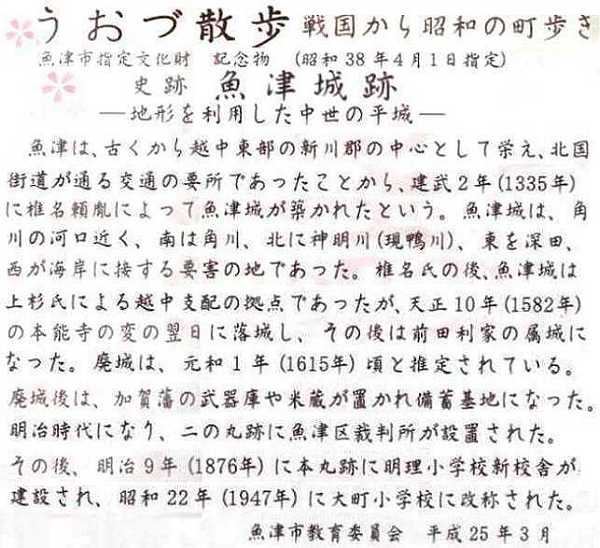 うおづ散歩 戦国から昭和の町歩き
魚津市指定文化財 記念物 (昭和38年4月1日指定)
史跡 魚津城跡
―地形を利用した中世の平城―
魚津は、古くから越中東部の新川郡の中心として栄え、北国
街道が通る交通の要所であったことから、建武2年(1335年)
に椎名頼胤によって魚津城が築かれたという。魚津城は、角
川の河口近く、南は角川、北に神明川(現鴨川)、東を深田、
西が海岸に接する要害の地であった。椎名氏の後、魚津城は
上杉氏による越中支配の拠点であったが、天正10年(1582年)
の本能寺の変の翌日に落城し、その後は前田利家の属城に
なった。廃城は、元和1年(1615年)頃と推定されている。
廃城後は、加賀藩の武器庫や米蔵が置かれ備蓄基地になった。
明治時代になり、二の丸跡に魚津区裁判所が設置された。
その後、明治9年(1876年)に本丸跡に明理小学校新校舎が
建設され、昭和22年(1947年)に大町小学校に改称された。
魚津市教育委員会 平成25年3月